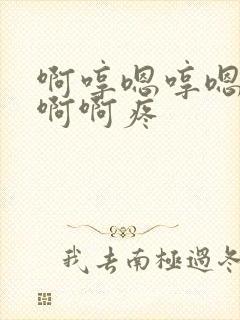 啊哼嗯哼嗯
啊啊疼
我去南極過冬